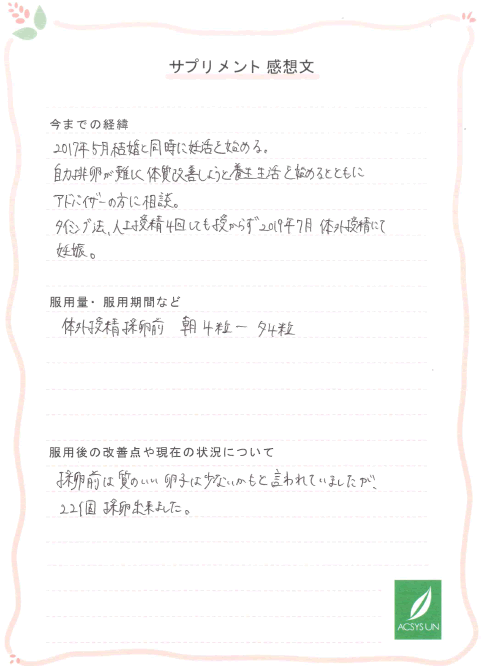 サプリメント 感想文
今までの経緯
2017年5月結婚と同時に妊活を始める。
自力排卵が難しく体質改善しようと養生生活を始めるとともに
アドバイザーの方に相談。
タイミング法、人工授精4回しても授からず2019年7月 体外授精にて
妊娠。
服用量・服用期間など
体外授精採卵前 朝4粒ー夕4粒
服用後の改善点や現在の状況について
採卵前は質のいい卵子は少ないかもと言われていましたが、
22個 採卵出来ました。
ACSYSUN